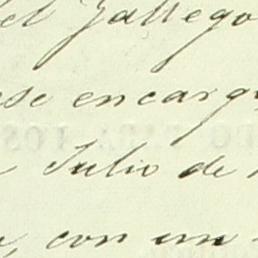 el Gallego
ese encarg
Julio de
con un